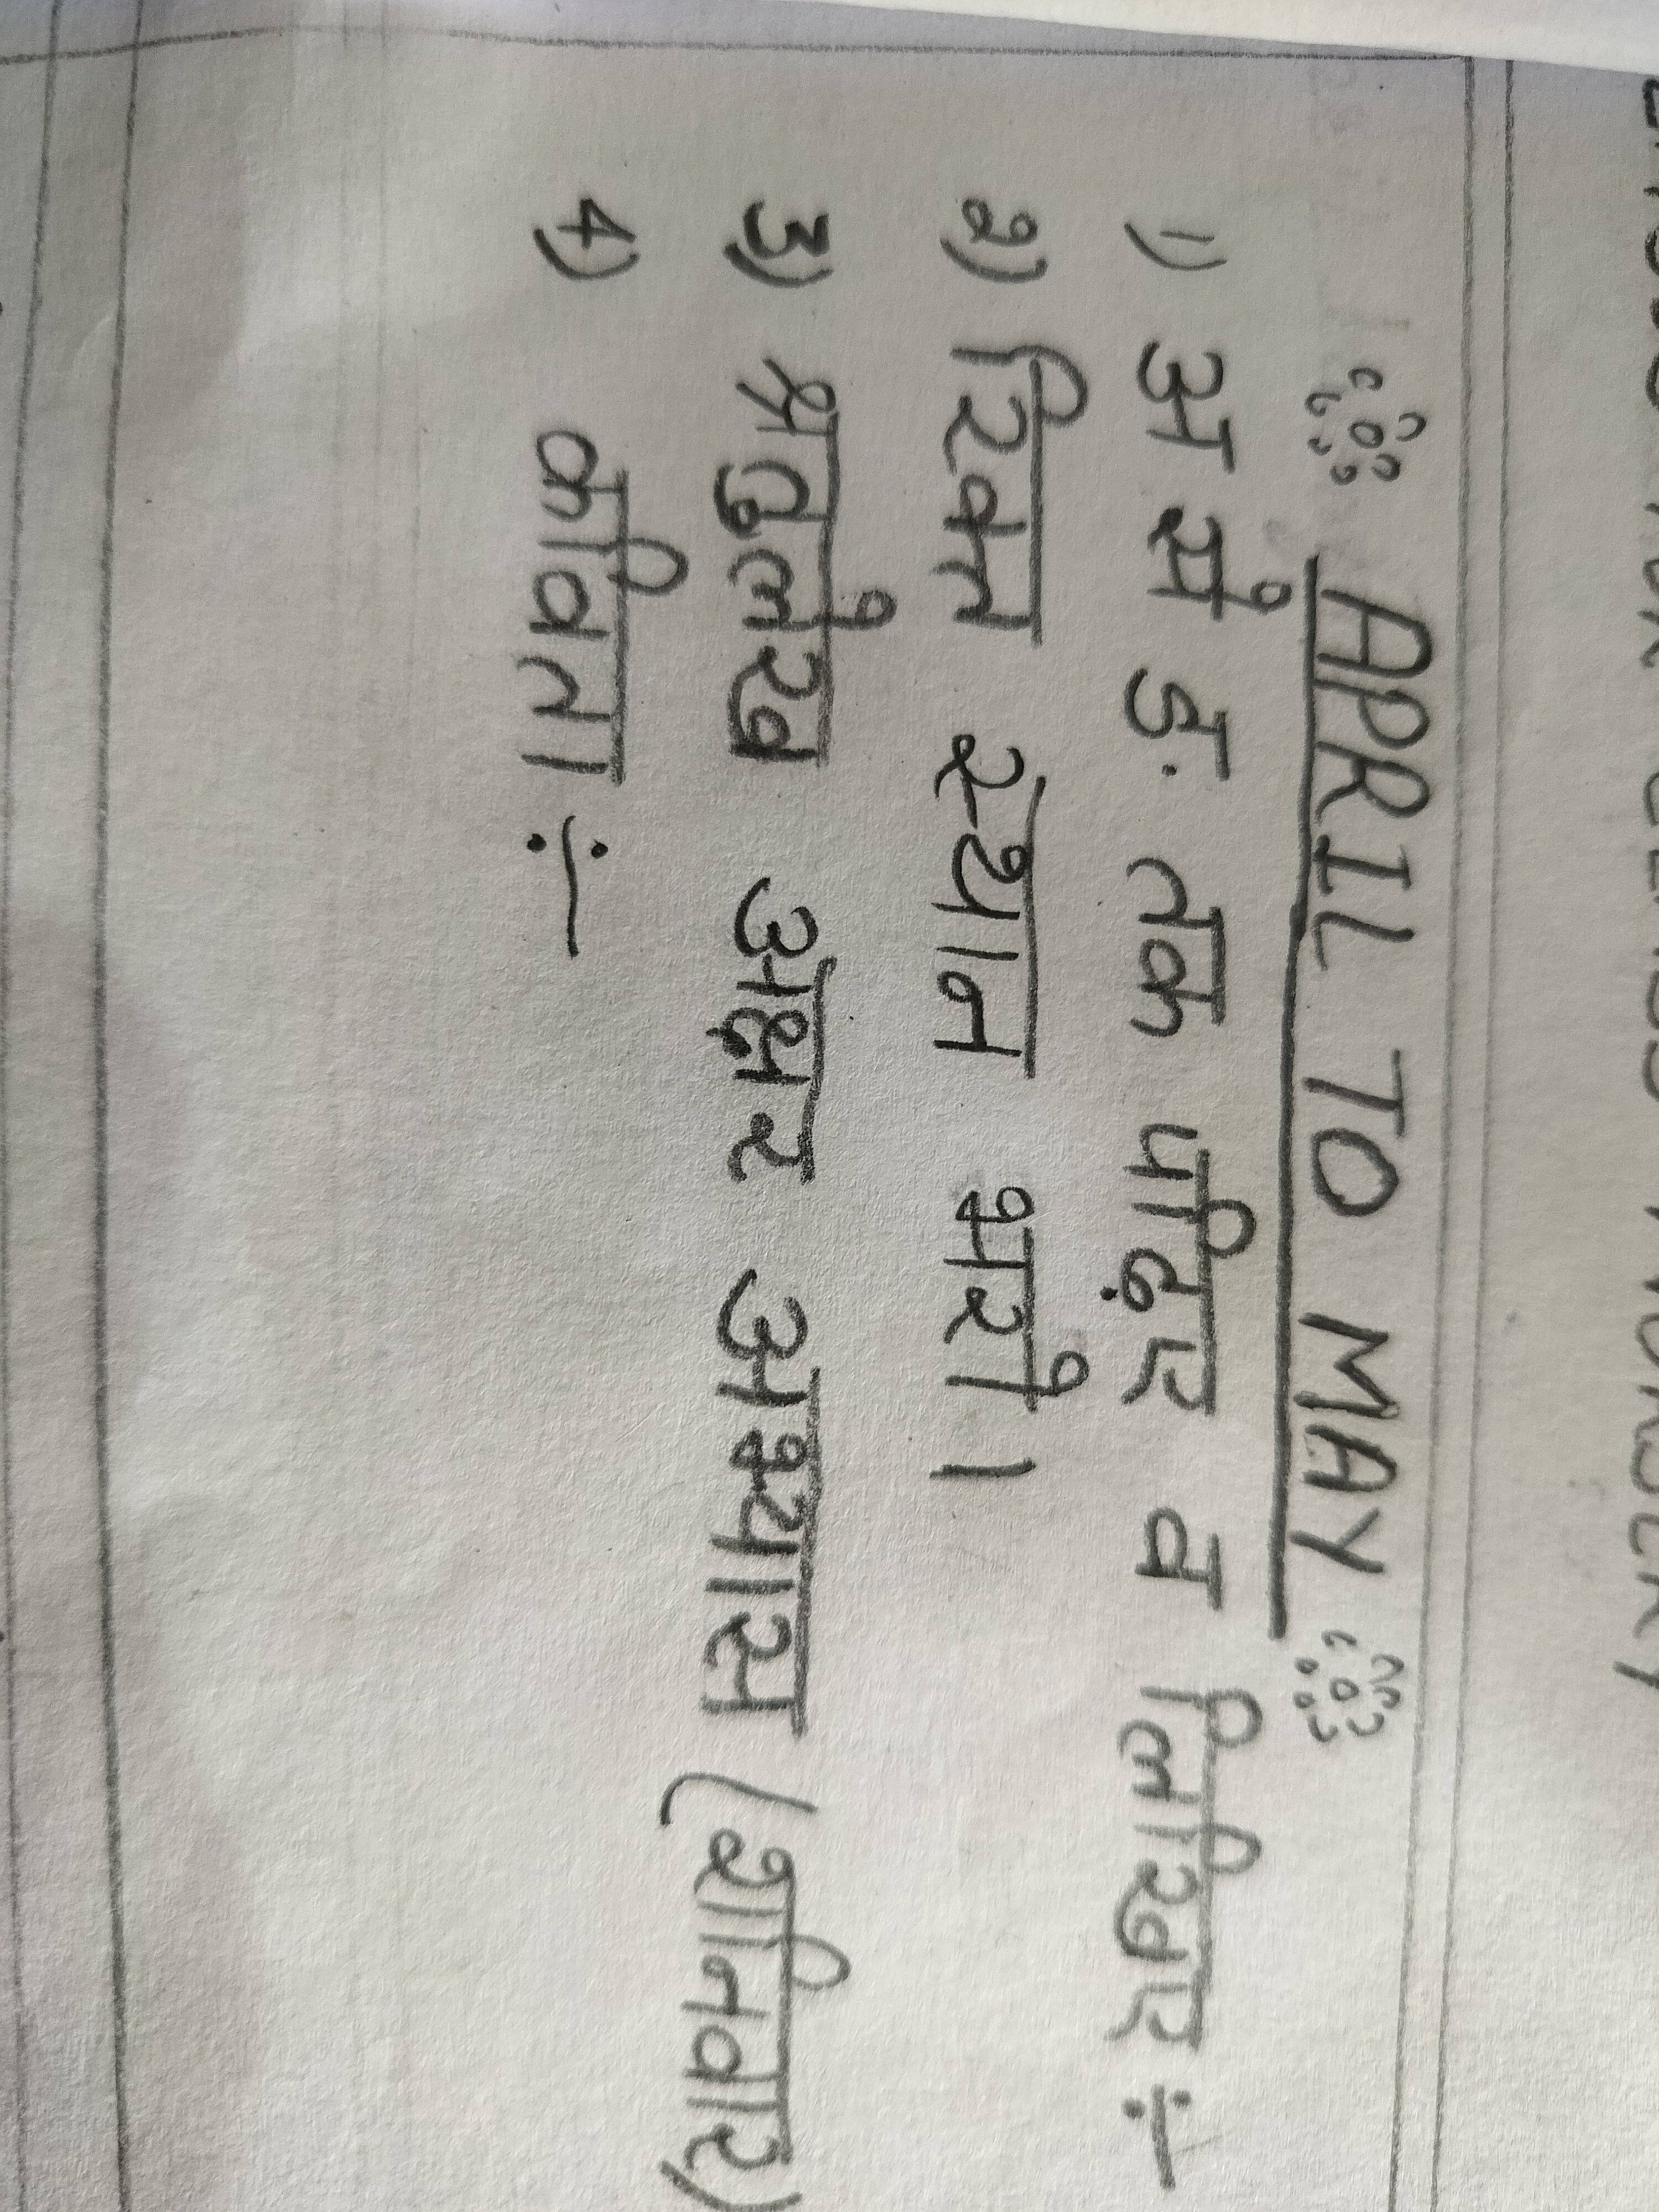 APRIL TO MAY
1) अ से ङ तक पढ़िए व लिखिए :-
2) रिक्त स्थान भरो।
3) श्रुतुलेख अक्षर अभ्यास (शनिवार)
4) कविता :-